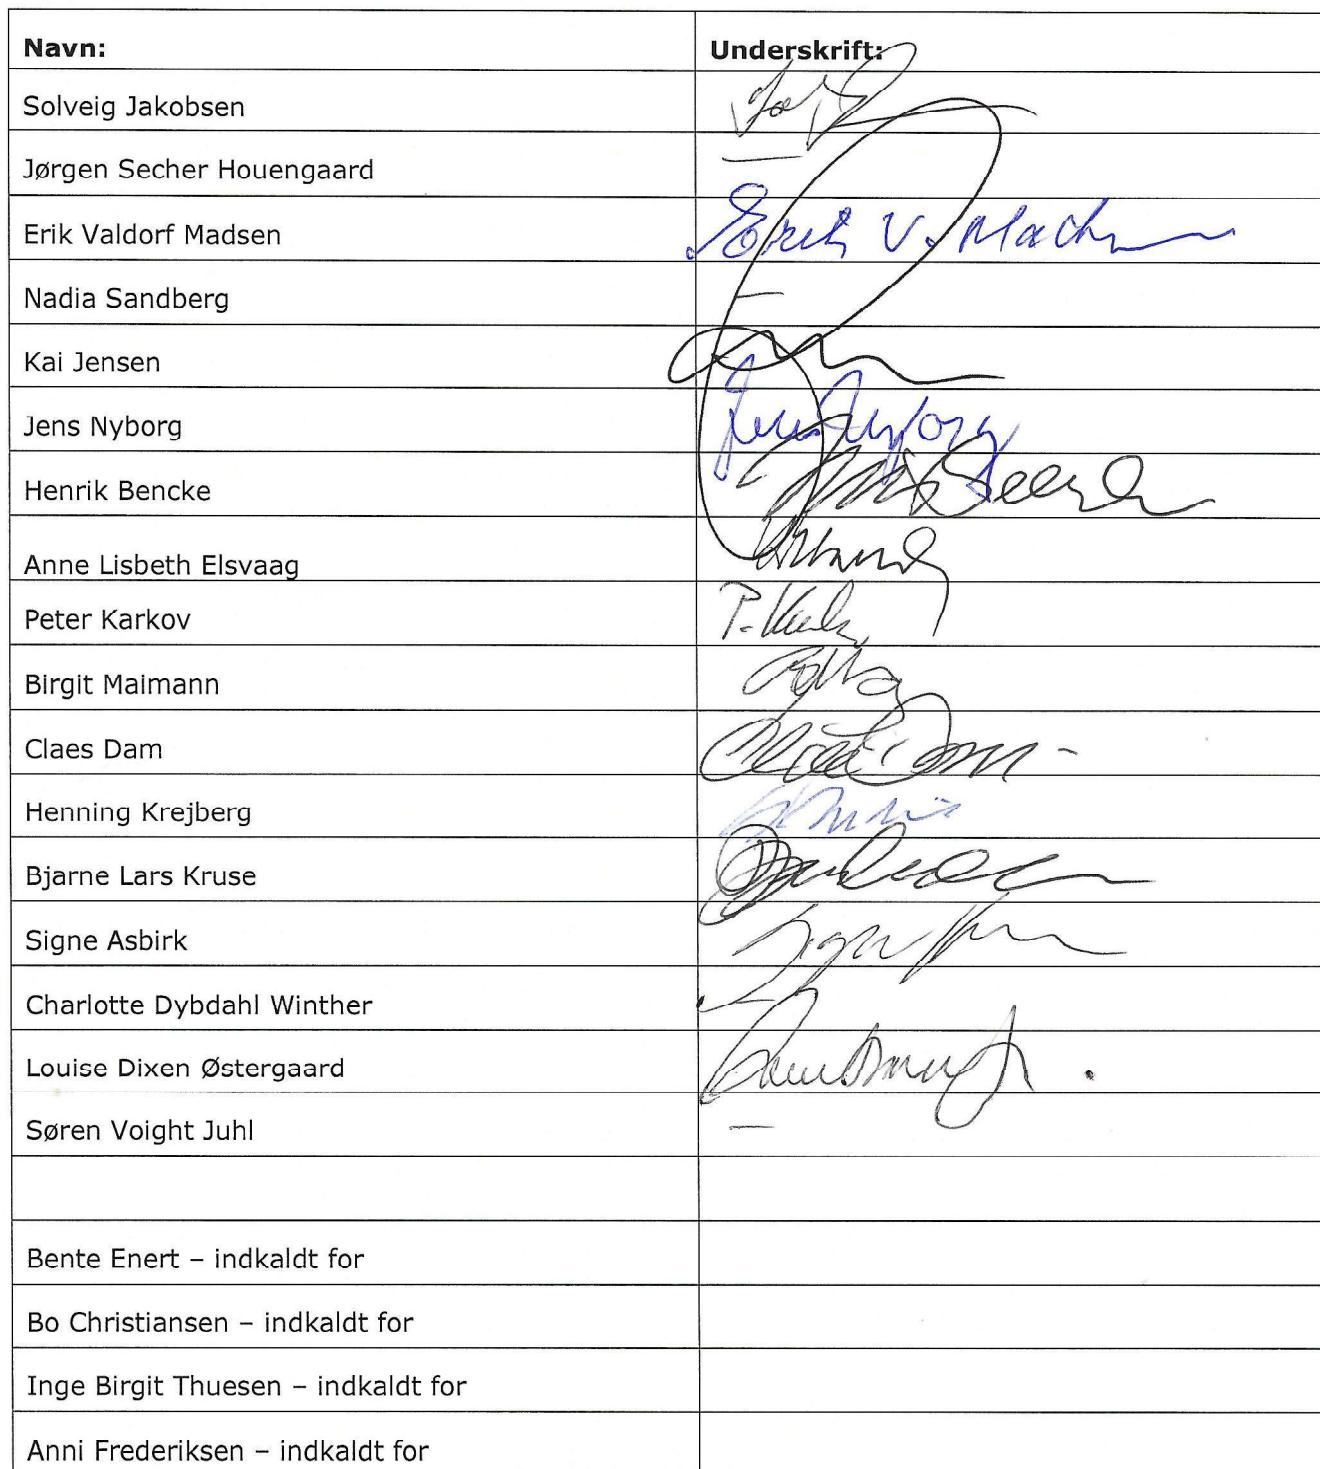 Navn: Underskrift:
Solveig Jakobsen
Jørgen Secher Houengaard —
Erik Valdorf Madsen Erik V. Madsen
Nadia Sandberg —
Kai Jensen
Jens Nyborg Jens Nyborg
Henrik Bencke
Anne Lisbeth Elsvaag
Peter Karkov P. Karkov
Birgit Maimann
Claes Dam Claes Dam
Henning Krejberg
Bjarne Lars Kruse
Signe Asbirk
Charlotte Dybdahl Winther
Louise Dixen Østergaard
Søren Voight Juhl —
Bente Enert – indkaldt for
Bo Christiansen – indkaldt for
Inge Birgit Thuesen – indkaldt for
Anni Frederiksen – indkaldt for